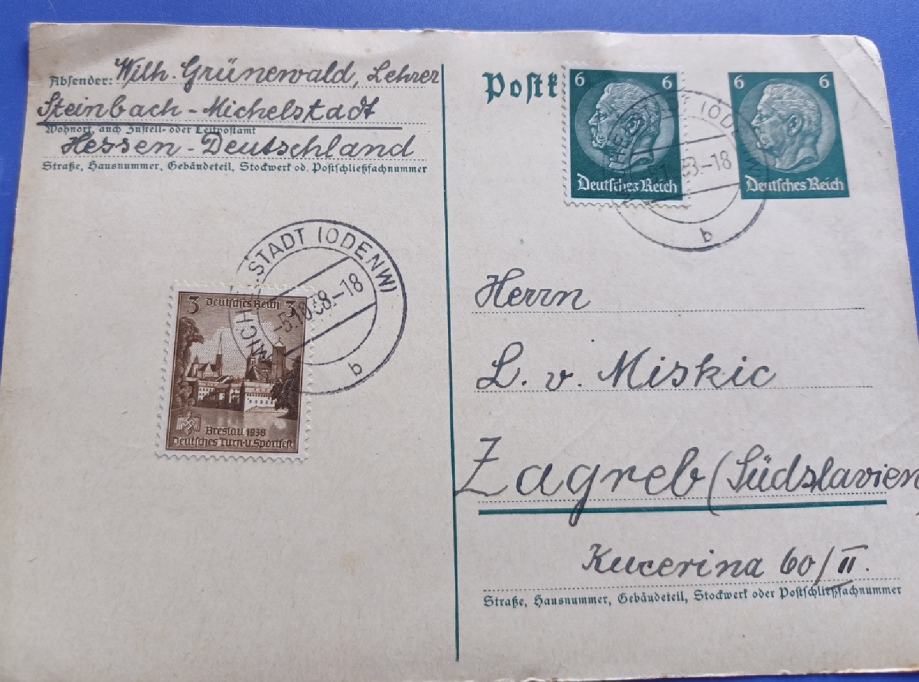 Absender: Wilh. Grünewald, Lehrer
Steinbach-Michelstadt
Wohnort, auch Zustell- oder Leitpostamt
Hessen-Deutschland
Straße, Hausnummer, Gebäudeteil, Stockwerk od. Postschließfachnummer
STADT (ODENW)
-5.10.38.-18
b
3 Deutsches Reich 3
Breslau 1938
Deutsches Turn-u. Sportfest
Postk
6 6
Deutsches Reich
6 6
Deutsches Reich
(ODENW
38.-18
b
Herrn
L. v. Miskic
Zagreb (Südslavien
Kucerina 60/II.
Straße, Hausnummer, Gebäudeteil, Stockwerk oder Postschließfachnummer